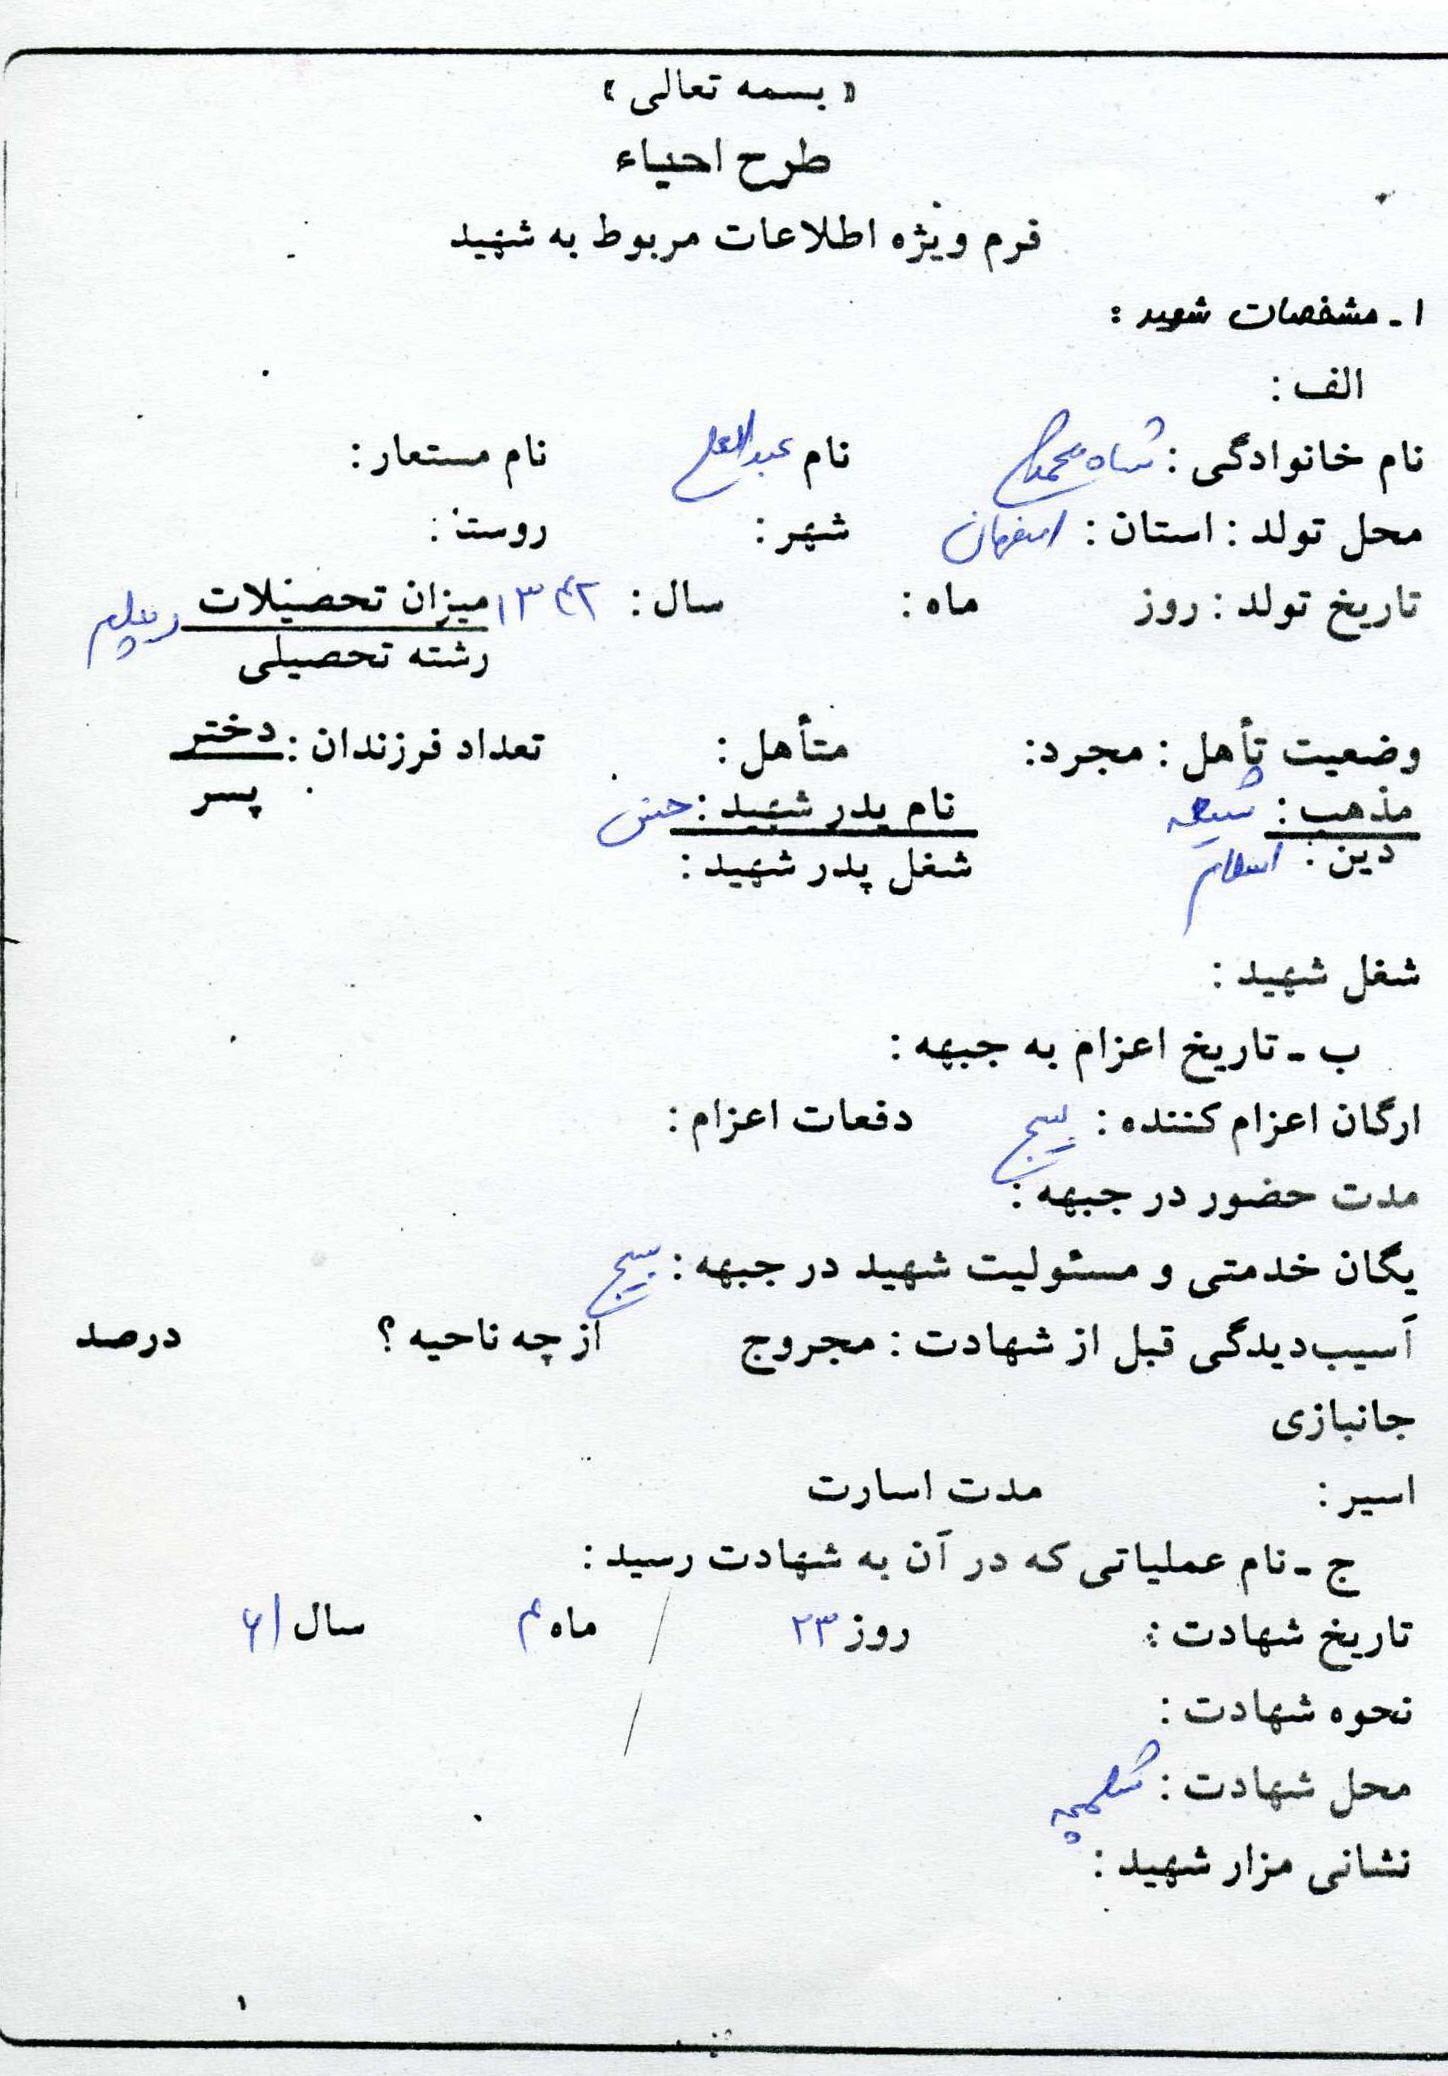 « بسمه تعالی »
طرح احیاء
فرم ویژه اطلاعات مربوط به شهید
۱ ـ مشخصات شهید :
الف :
نام خانوادگی : نام نام مستعار :
محل تولد : استان : اصفهان شهر : روستا :
تاریخ تولد : روز ماه : سال : ۱۳۴۲ میزان تحصیلات دیپلم
رشته تحصیلی
وضعیت تأهل : مجرد: متأهل : تعداد فرزندان : دختر
پسر
مذهب : شیعه نام پدر شهید :
دین : اسلام شغل پدر شهید :
شغل شهید :
ب ـ تاریخ اعزام به جبهه :
ارگان اعزام کننده : بسیج دفعات اعزام :
مدت حضور در جبهه :
یگان خدمتی و مسئولیت شهید در جبهه : بسیج
آسیب‌دیدگی قبل از شهادت : مجروج از چه ناحیه ؟ درصد
جانبازی
اسیر : مدت اسارت
ج ـ نام عملیاتی که در آن به شهادت رسید :
تاریخ شهادت : روز ۲۳ ماه ۴ سال ۶۱
نحوه شهادت :
محل شهادت : شلمچه
نشانی مزار شهید :
۱